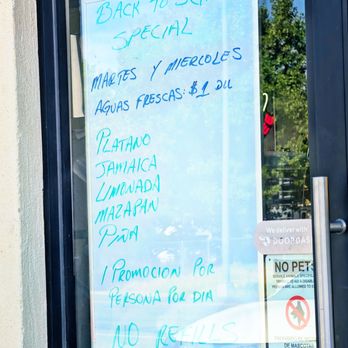 BACK TO SCH
SPECIAL
MARTES Y MIERCOLES
AGUAS FRESCAS: $1 DLL
PLATANO
JAMAICA
LIMONADA
MAZAPAN
PIÑA
1 PROMOCION POR
PERSONA POR DIA
NO REFILLS
We deliver with
DOORDAS
NO PETS
DE MASCOTAS